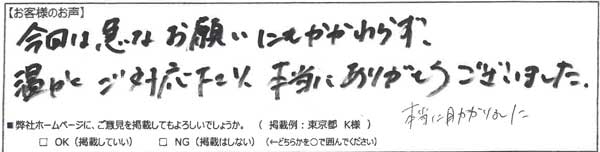 【お客様のお声】
今回は急なお願いにもかかわらず、
温かくご対応下さり本当にありがとうございました。
本当に助かりました
■弊社ホームページに、ご意見を掲載してもよろしいでしょうか。 ( 掲載例:東京都 K様 )
□ OK(掲載していい) □ NG(掲載はしない) (←どちらかを○で囲んでください)